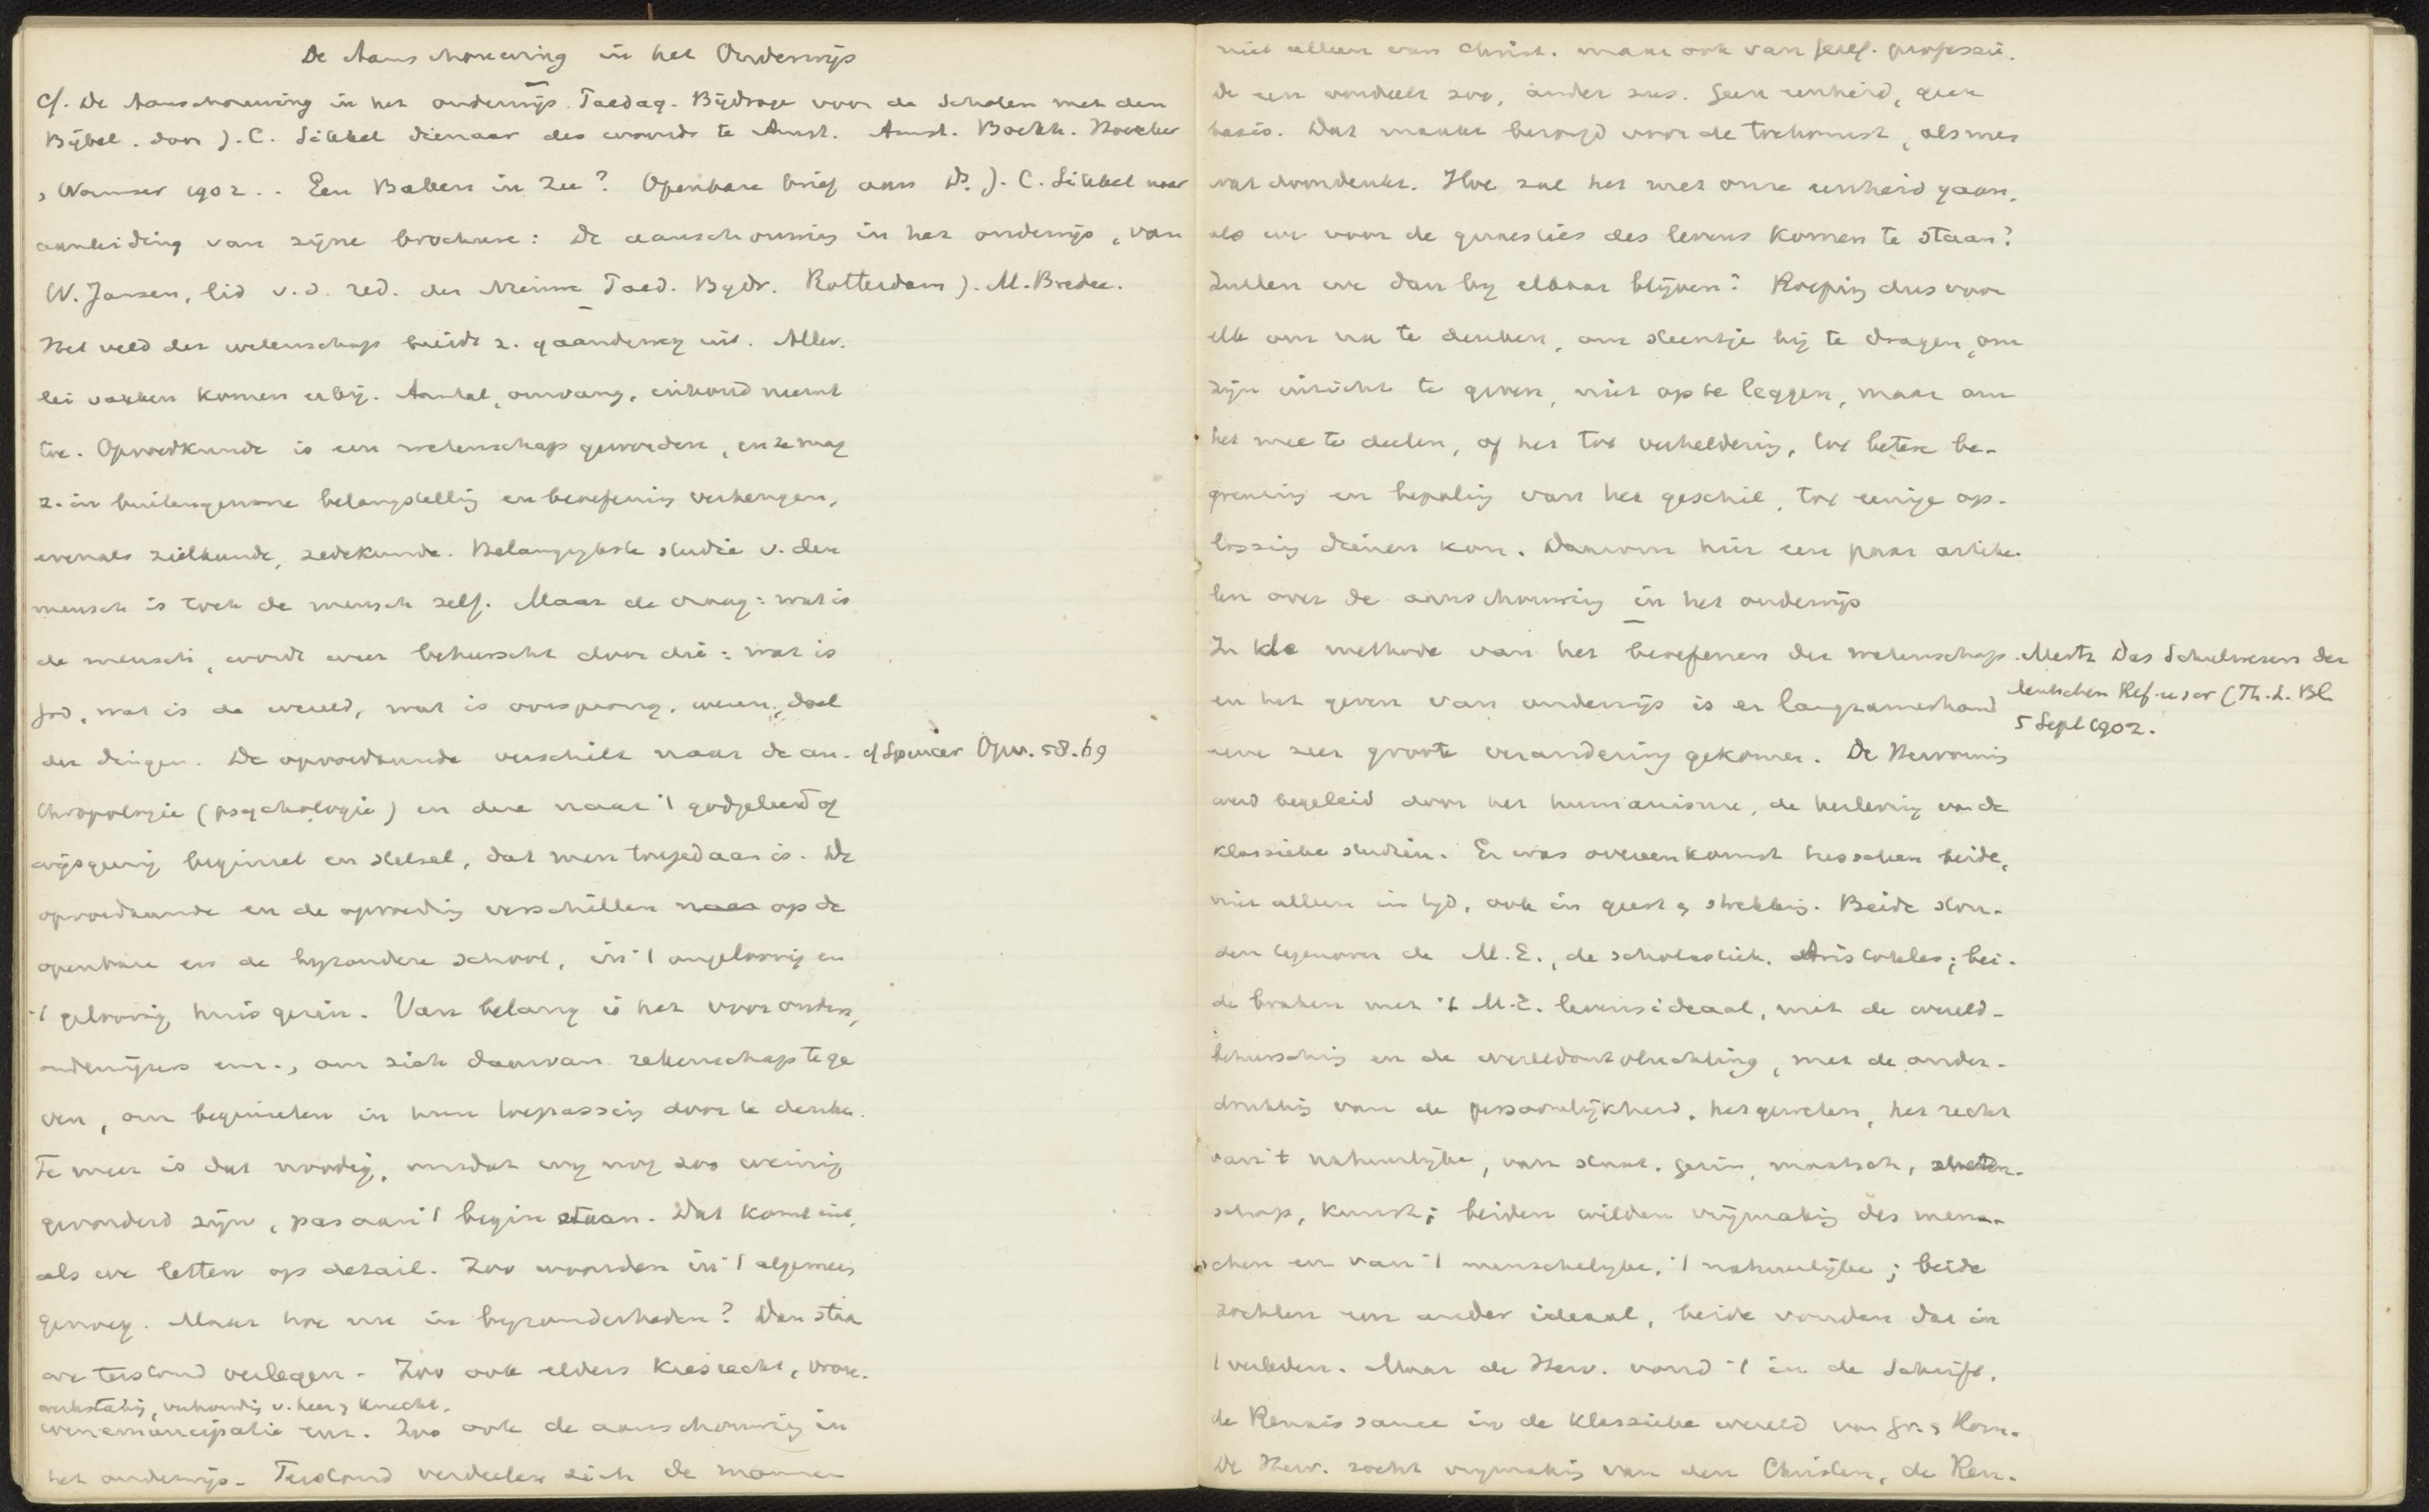 De Aanschouwing in het Onderwijs
cf. De Aanschouwing in het onderwijs. Paedag. Bijdrage voor de Scholen met den
Bijbel. door J. C. Sikkel dienaar des woords te Amst. Amst. Boekh. Höveker
& Wormser 1902. . Een Baken in Zee? Openbare brief aan Ds. J. C. Sikkel naar
aanleiding van zijne brochure: De aanschouwing in het onderwijs, van
W. Jansen, lid v. d. red. der Nieuwe Paed. Bydr. Rotterdam J. M. Bredee.
Het veld der wetenschap breidt z. gaandeweg uit. Aller-
lei vakken komen erbij. Aantal, omvang, inhoud neemt
toe. Opvoedkunde is een wetenschap geworden, en ze mag
z. in buitengewone belangstellig en beoefenig verheugen,
evenals zielkunde, zedekunde. Belangrykste studie v. den
mensch is toch de mensch zelf. Maar de vraag: wat is
de mensch, wordt weer beheerscht door die: wat is
God, wat is de wereld, wat is oorsprong, wezen, doel
der dingen. De opvoedkunde verschilt naar de an- cf Spencer Opv. 58. 69
thropologie (psychologie) en deze naar 't godgeleerd of
wijsgeerig beginsel en stelsel, dat men toegedaan is. De
opvoedkunde en de opvoedig verschillen naar op de
openbare en de byzondere school, in 't ongeloovig en
't geloovig huisgezin. Van belang is het voor ouders,
onderwijzers enz., om zich daarvan rekenschap te ge
ven, om beginselen in hun toepassing door te denken.
Te meer is dat noodig, omdat wy nog zoo weinig
gevorderd zijn, pas aan 't begin staan. Dat komt uit,
als we letten op detail. Zoo woorden in 't algemeen
genoeg. Maar hoe nu in byzonderheden? Dan staan
we terstond verlegen. Zoo ook elders kiesrecht, vrou-
werkstakig, verhoudig v. heer & knecht.
wenemancipatie enz. Zoo ook de aanschouwing in
het onderwijs. Terstond verdeelen zich de mannen
niet alleen van Christ. maar ook van Geref. professie.
De een oordeelt zoo, ander zus. Geen eenheid, geen
basis. Dat maakt bezorgd voor de toekomst, als men
wat doordenkt. Hoe zal het met onze eenheid gaan,
als we voor de quaesties des levens komen te staan?
Zullen we dan by elkaar blijven? Roeping dus voor
elk om na te denken, om steentje bij te dragen, om
zijn inzicht te geven, niet op te leggen, maar om
het mee te deelen, of het tot verheldering, tot betere be-
grenzing en bepaling van het geschil, tot eenige op-
lossing dienen kon. Daarom hier een paar artike-
len over de aanschouwing in het onderwijs
In de methode van het beoefenen der wetenschap
en het geven van onderwijs is er langzamerhand
eene zeer groote verandering gekomen. De Hervorming
Mertz Das Schulwesen der
deutschen Ref. (Th. L. Bl.
5 Sept 1902.
werd begeleid door het humanisme, de herleving van de
klassieke studiën. Er was overeenkomst tusschen beide,
niet alleen in tyd, ook in geest & strekking. Beide ston-
den tegenover de M. E., de scholastiek, Aristoteles; bei-
de braken met 't M.E. levensideaal, met de wereld-
beheersching en de wereldontvluchting, met de onder-
drukking van de persoonlijkheid, het geweten, het recht
van 't natuurlijke, van staat, gezin, maatsch., weten-
schap, kunst; beiden wilden vrijmaking des men-
schen en van 't menschelyke, 't natuurlijke; beide
zochten een ander ideaal, beide vonden dat in
't verleden. Maar de Herv. vond 't in de Schrift,
de Renaissance in de klassieke wereld van Gr. & Rom.
De Herv. zocht vrymaking van den Christen, de Ren.